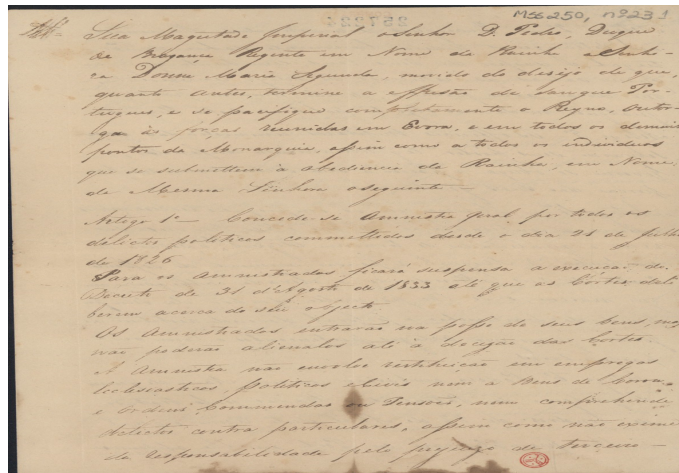 Mss 250, nº 23 1
257226
Sua Magestade Imperial o Senhor D. Pedro, Duque
de Bragança Regente em Nome da Rainha a Senho-
ra Donna Maria Segunda, movido do desejo de que,
quanto antes, termine a effusão de sangue Por-
tuguez, e se pacifique completamente o Reyno, outor-
ga ás forças reunidas em Evora, e em todos os demais
pontos da Monarquia, assim como a todos os individuos
que se submetterem à obediencia da Rainha, em Nome
da Mesma Senhora o seguinte —
Artigo 1º — Concede-se Amnistia geral por todos os
delictos politicos commettidos desde o dia 31 de Julho
de 1826
Para os amnistiados ficará suspensa a execução do
Decreto de 31 d'Agosto de 1833 até que as Cortes deli
berem acerca do seu objecto
Os Amnistiados entrarão na posse de seus bens, mas
não poderão alienalos até a decizão das Cortes.
A Amnistia não envolve restituição em empregos
Ecclesiasticos, Politicos e Civis nem a Bens da Coroa
e Ordens, Commendas ou Pensoes, nem comprehende
delictos contra particulares, assim como não exime
da responsabilidade pelo prejuizo de terceiro —